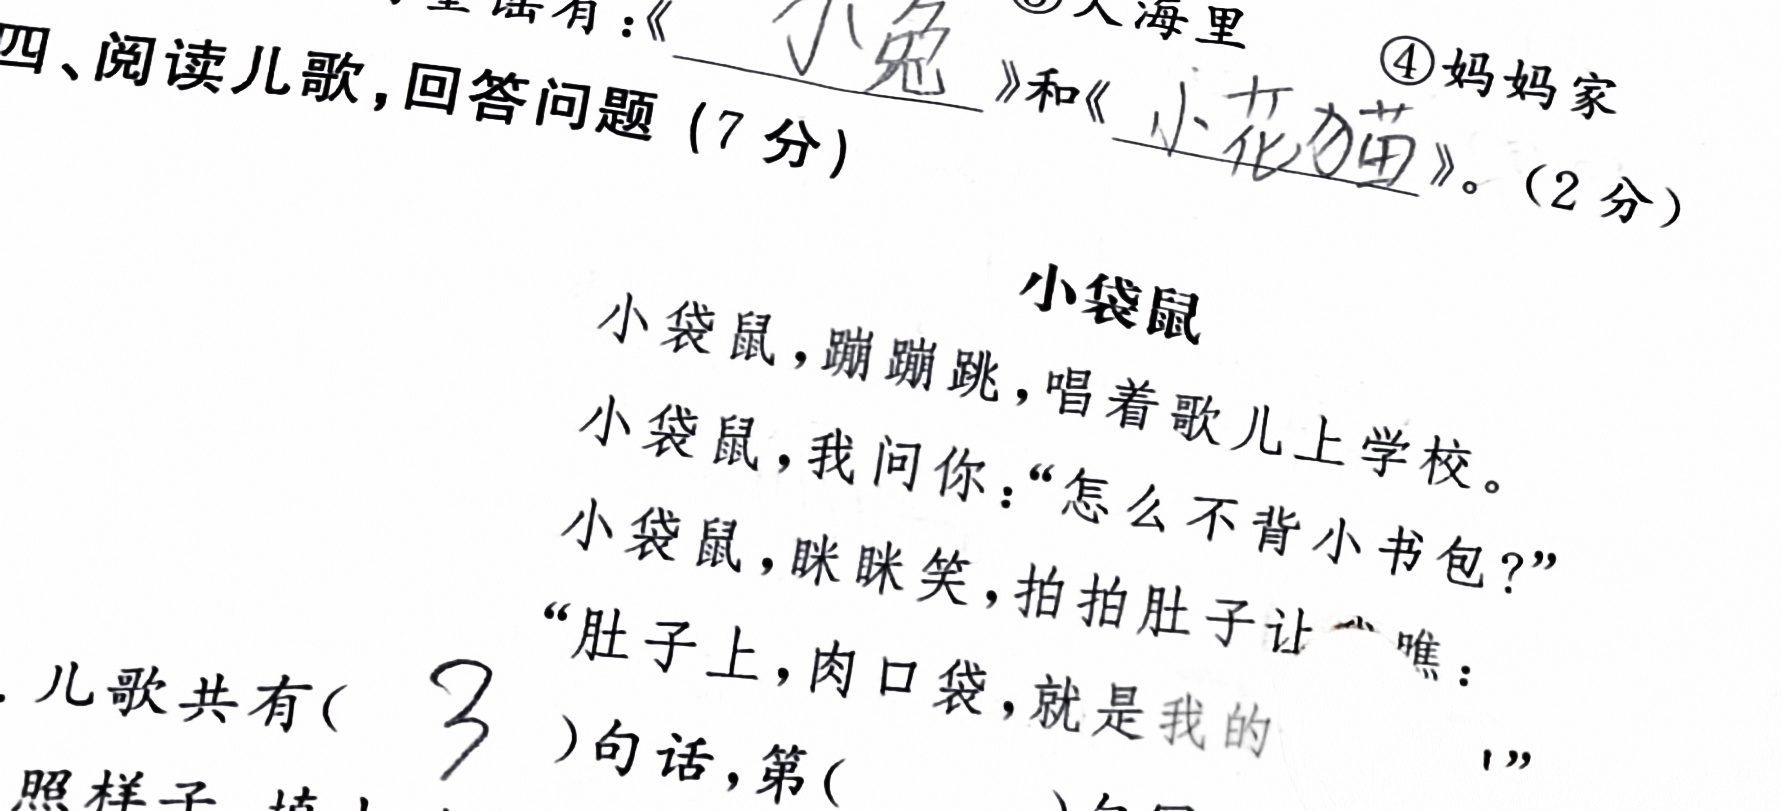 谣有:《小兔》和《小花猫》。(2 分)
大海里
④妈妈家
四、阅读儿歌,回答问题(7 分)
小袋鼠
小袋鼠,蹦蹦跳,唱着歌儿上学校。
小袋鼠,我问你:“怎么不背小书包?”
小袋鼠,眯眯笑,拍拍肚子让 瞧:
“肚子上,肉口袋,就是我的 ”
儿歌共有( 3 )句话,第( )
照样子